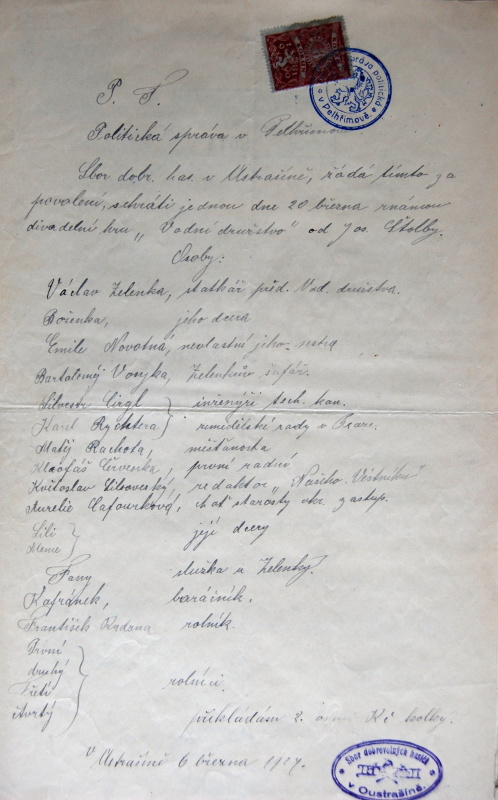 P. T.
Politická správa v Pelhřimově
Sbor dobr. has. v Ustrašíně, žádá tímto za
povolení, sehráti jednou dne 20 března známou
divadelní hru „Vodní družstvo" od Jos. Štolby.
Osoby:
Václav Zelenka, statkář před. Vod. družstva.
Boženka, jeho dcera
Emile Novotná, nevlastní jeho sestra
Bartoloměj Vosyka, Zelenkův šafář.
Silvestr Cirgl } inženýři tech. kan.
Karel Rychtera } zemědělské rady v Praze.
Matěj Rachota, měšťanosta
Kleofáš Červenka, první radní
Květoslav redaktor „Našeho Věstníku"
Aurelie Cafourková, choť starosty okr. zastup.
Lili } její dcery
Meme }
Fany služka u Zelenky.
Kafránek, baráčník.
František Kadana rolník.
První }
druhý }
třetí } rolníci.
čtvrtý }
přikládám 2. Kč kolky.
V Ustrašíně 6 března 1927.
správa politická v Pelhřimově
Sbor dobrovolných hasičů
v Oustrašíně.